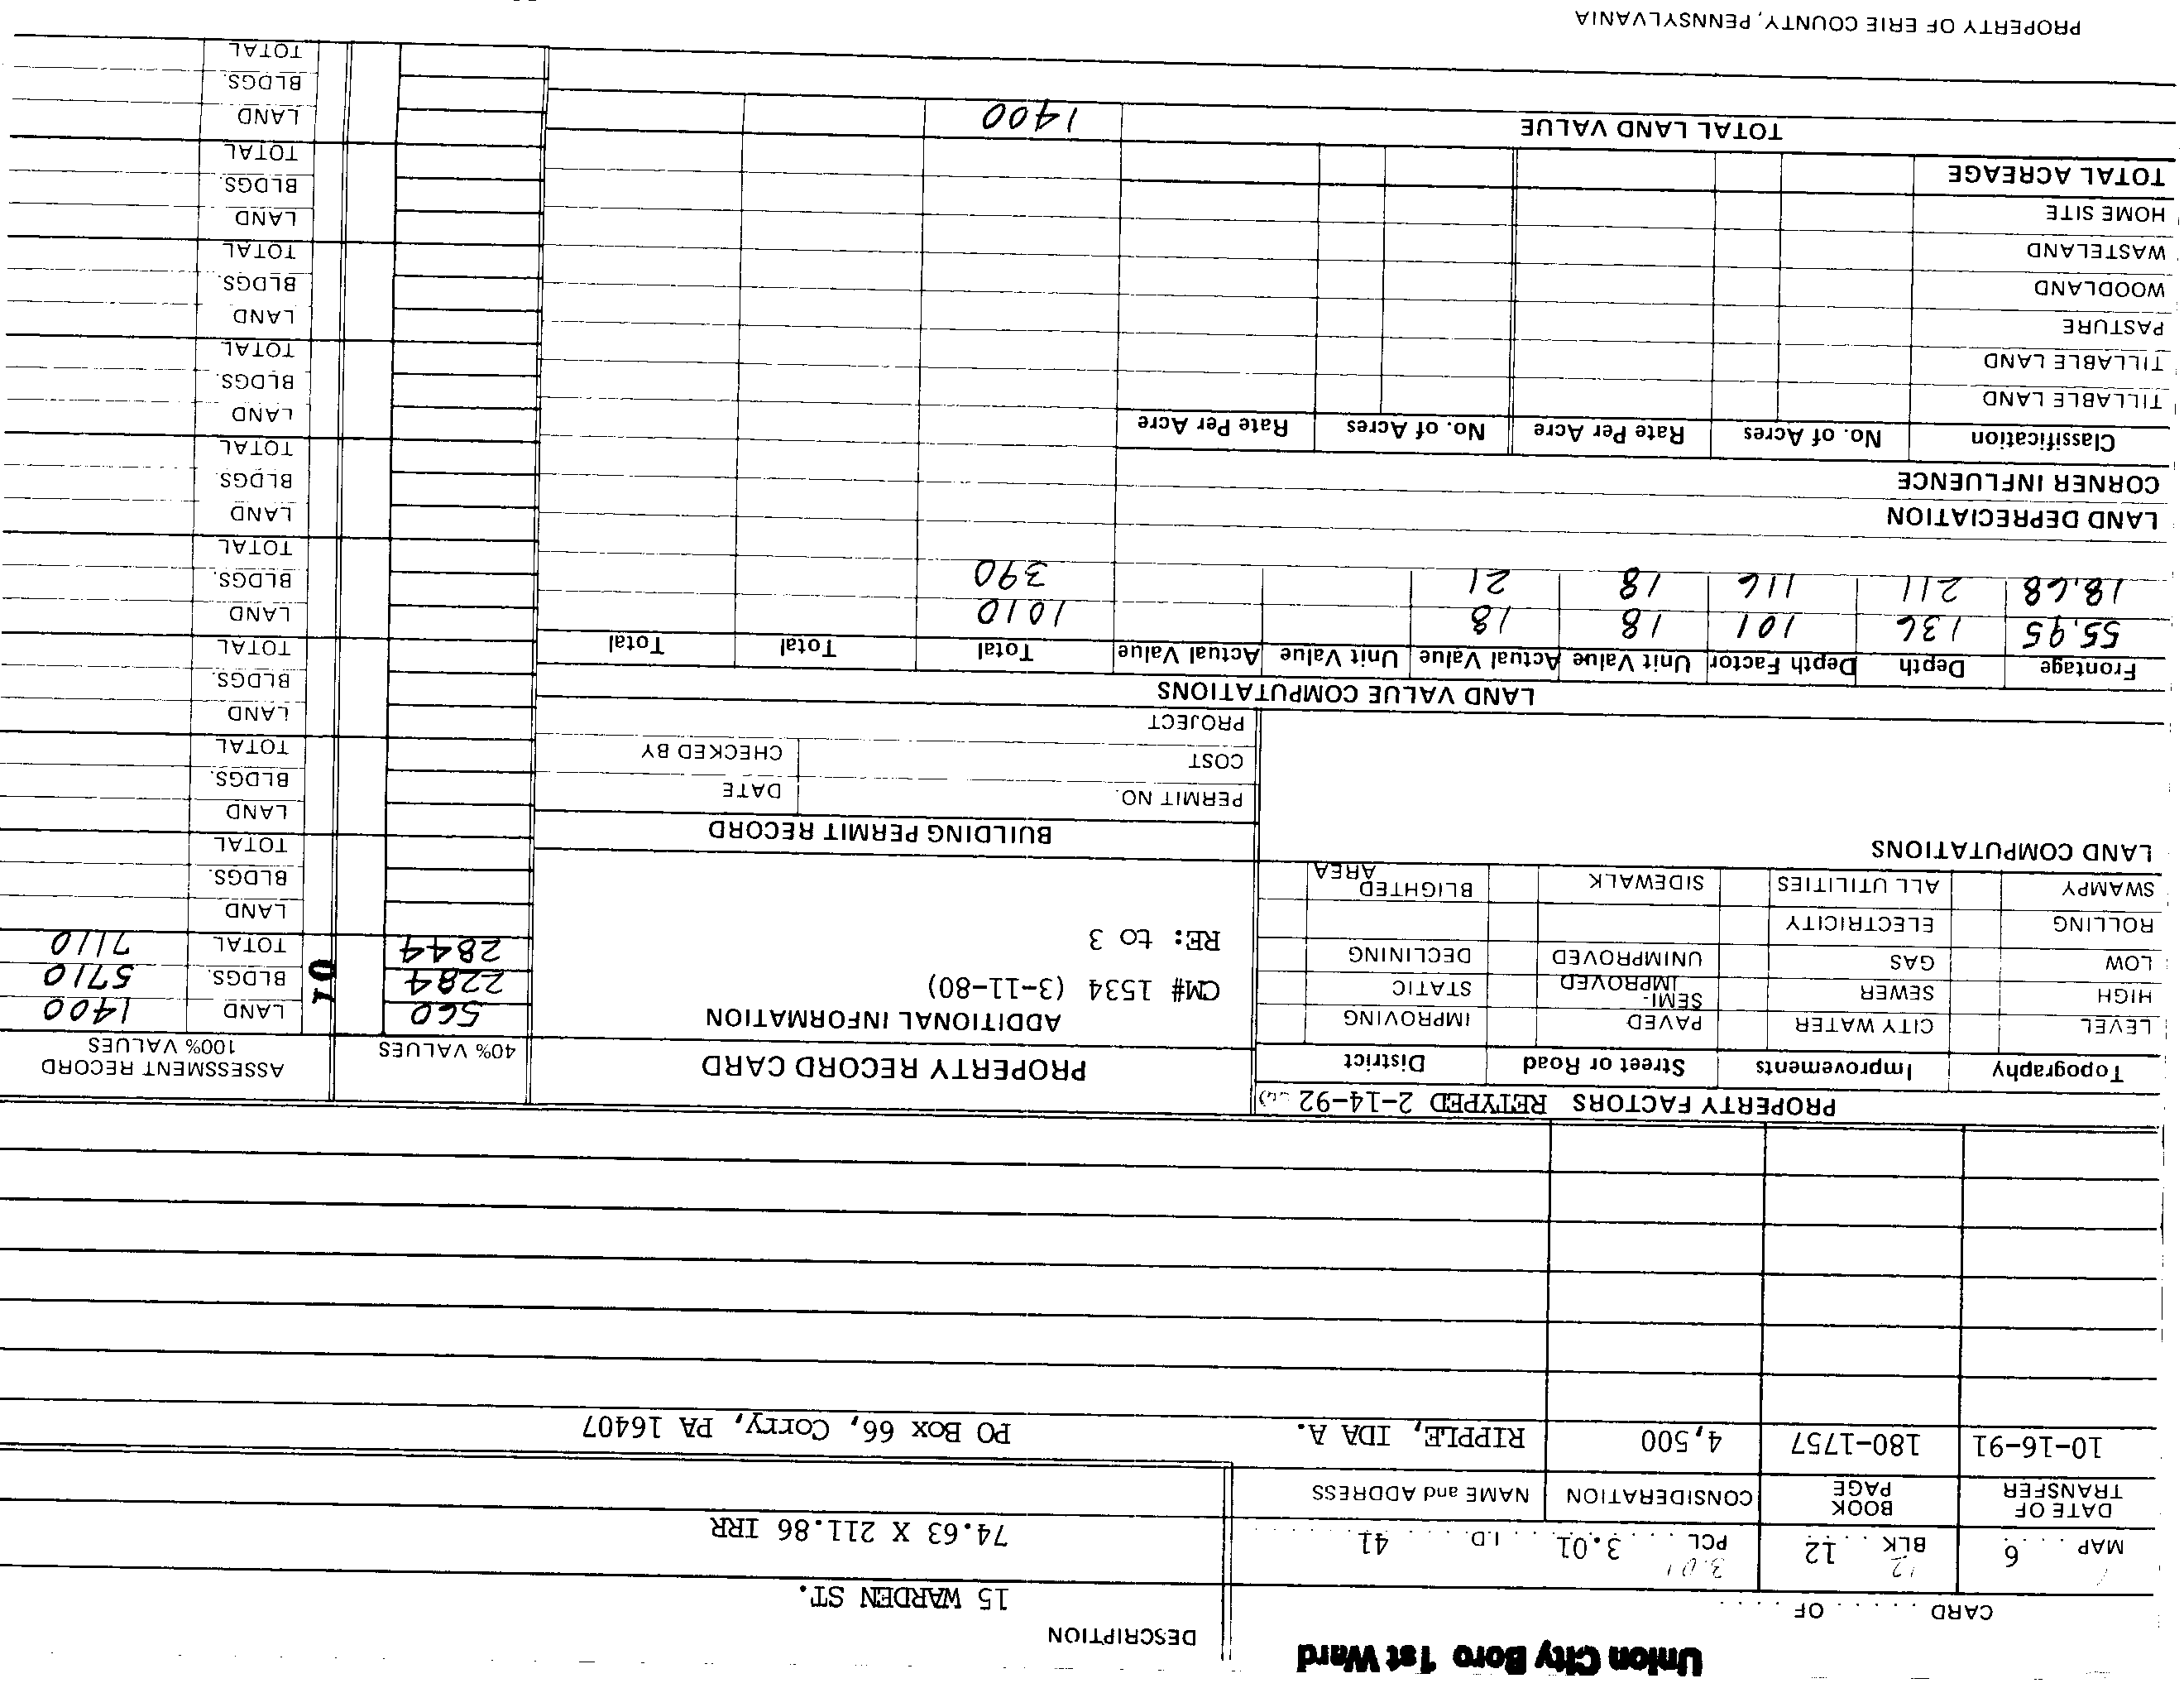 Union City Boro 1st Ward
CARD . . . . . . OF . . . . . .
DESCRIPTION
15 WARDEN ST.
74.63 X 211.86 IRR
12 3.01
MAP 6 BLK 12 PCL 3.01 I.D. 41
DATE OF TRANSFER BOOK PAGE CONSIDERATION NAME and ADDRESS
10-16-91 180-1757 4,500 RIPPLE, IDA A. PO Box 66, Corry, PA 16407
PROPERTY FACTORS RETYPED 2-14-92
Topography Improvements Street or Road District
LEVEL CITY WATER PAVED IMPROVING
HIGH SEWER SEMI-IMPROVED STATIC
LOW GAS UNIMPROVED DECLINING
ROLLING ELECTRICITY
SWAMPY ALL UTILITIES SIDEWALK BLIGHTED AREA
LAND COMPUTATIONS
PROPERTY RECORD CARD
ADDITIONAL INFORMATION
CM# 1534 (3-11-80)
RE: to 3
BUILDING PERMIT RECORD
PERMIT NO. DATE
COST CHECKED BY
PROJECT
40% VALUES ASSESSMENT RECORD 100% VALUES
560 LAND 1400
2284 01 BLDGS. 5710
2844 TOTAL 7110
LAND
BLDGS.
TOTAL
LAND
BLDGS.
TOTAL
LAND
BLDGS.
TOTAL
LAND
BLDGS.
TOTAL
LAND
BLDGS.
TOTAL
LAND
BLDGS.
TOTAL
LAND
BLDGS.
TOTAL
LAND
BLDGS.
TOTAL
LAND
BLDGS.
TOTAL
LAND VALUE COMPUTATIONS
Frontage Depth Depth Factor Unit Value Actual Value Unit Value Actual Value Total Total Total
55.95 136 101 18 18 1010
18.68 211 116 18 21 390
LAND DEPRECIATION
CORNER INFLUENCE
Classification No. of Acres Rate Per Acre No. of Acres Rate Per Acre
TILLABLE LAND
TILLABLE LAND
PASTURE
WOODLAND
WASTELAND
HOME SITE
TOTAL ACREAGE
TOTAL LAND VALUE 1400
PROPERTY OF ERIE COUNTY, PENNSYLVANIA